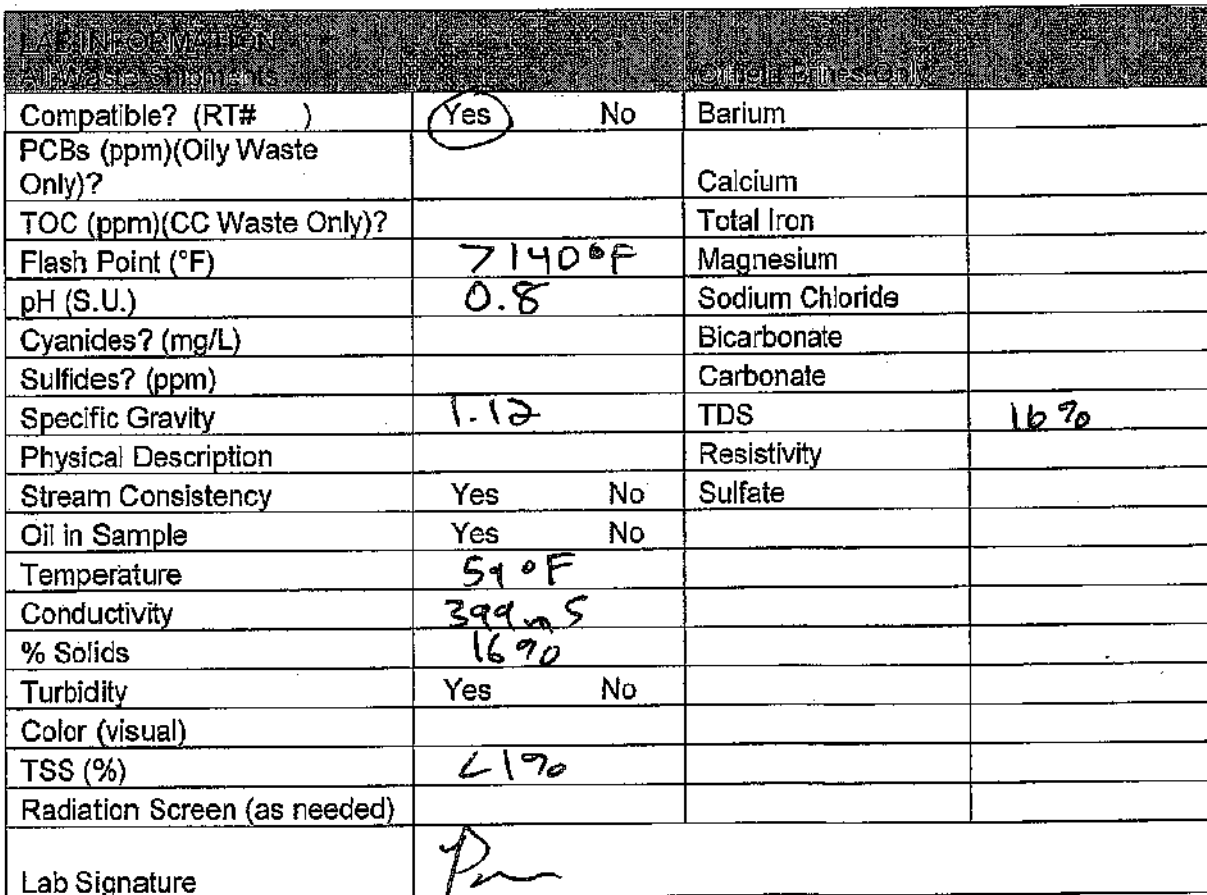 LAB INFORMATION
All Waste Shipments Oilfield Brines Only
Compatible? (RT# ) Yes No Barium
PCBs (ppm)(Oily Waste
Only)? Calcium
TOC (ppm)(CC Waste Only)? Total Iron
Flash Point (°F) >140°F Magnesium
pH (S.U.) 0.8 Sodium Chloride
Cyanides? (mg/L) Bicarbonate
Sulfides? (ppm) Carbonate
Specific Gravity 1.12 TDS 16%
Physical Description Resistivity
Stream Consistency Yes No Sulfate
Oil in Sample Yes No
Temperature 59°F
Conductivity 399 mS
% Solids 16%
Turbidity Yes No
Color (visual)
TSS (%) <1%
Radiation Screen (as needed)
Lab Signature